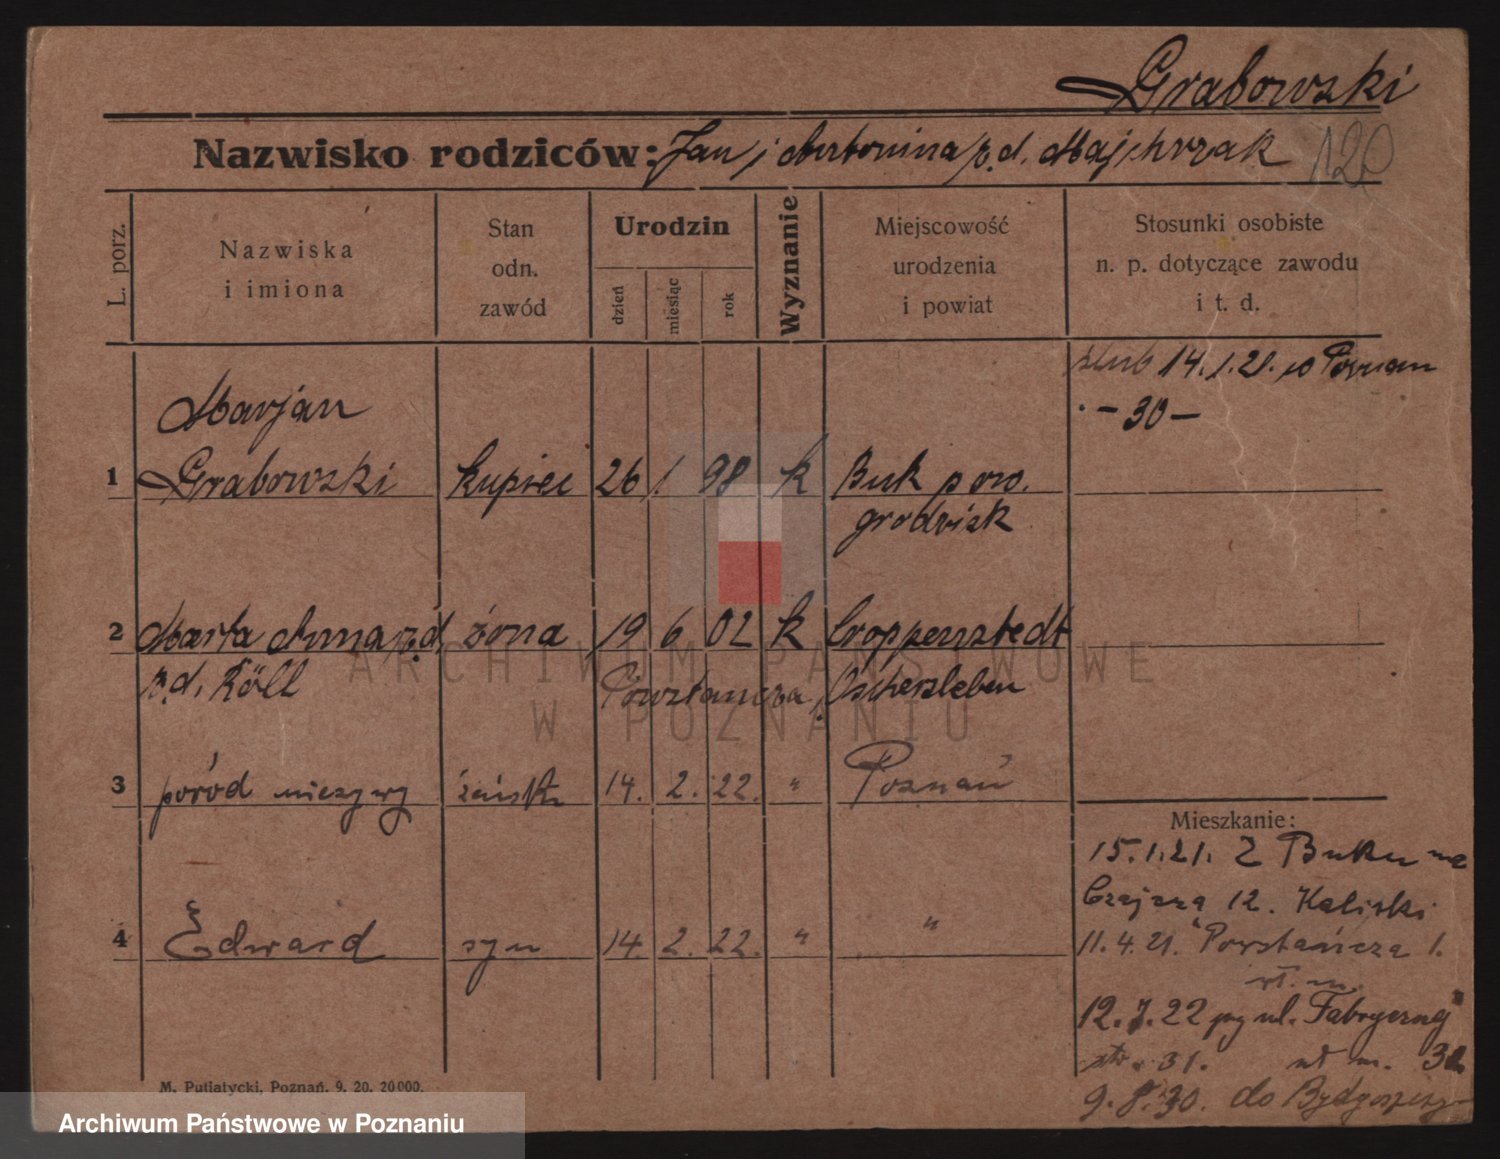 Grabowski
Nazwisko rodziców: Jan i Antonina z d. Majchrzak
120
L. porz.
Nazwiska
i imiona
Stan
odn.
zawód
Urodzin
dzień
miesiąc
rok
Wyznanie
Miejscowość
urodzenia
i powiat
Stosunki osobiste
n. p. dotyczące zawodu
i t. d.
ślub 14.1.21. w Poznan
- 30 -
Marjan
1 Grabowski kupiec 26 1 98 k Buk pow.
grodzisk
2 Marta Anna z.d. żona 19 6 02 k Croppenstedt
z.d. Röll Powstańcza Oschersleben
3 poród nieżywy żeńsk 14. 2. 22. " Poznań
4 Edward syn 14. 2. 22. " "
Mieszkanie:
15.1.21. Z Buku na
12. Kaliski
11.4.21. Powstańcza 1.
12.7.22 przy ul. Fabrycznej
31. m. 30
9.8.30. do Bydgoszczy
M. Putiatycki, Poznań. 9. 20. 20000.
ARCHIWUM PAŃSTWOWE
W POZNANIU
Archiwum Państwowe w Poznaniu